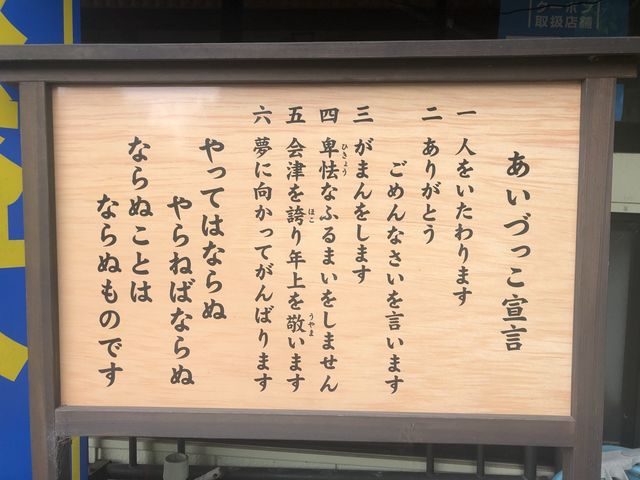 クーポン
取扱店舗
あいづっこ宣言
一 人をいたわります
二 ありがとう
ごめんなさいを言います
三 がまんをします
四 卑怯なふるまいをしません
ひきょう
五 会津を誇り年上を敬います
ほこ
うやま
六 夢に向かってがんばります
やってはならぬ
やらねばならぬ
ならぬことは
ならぬものです